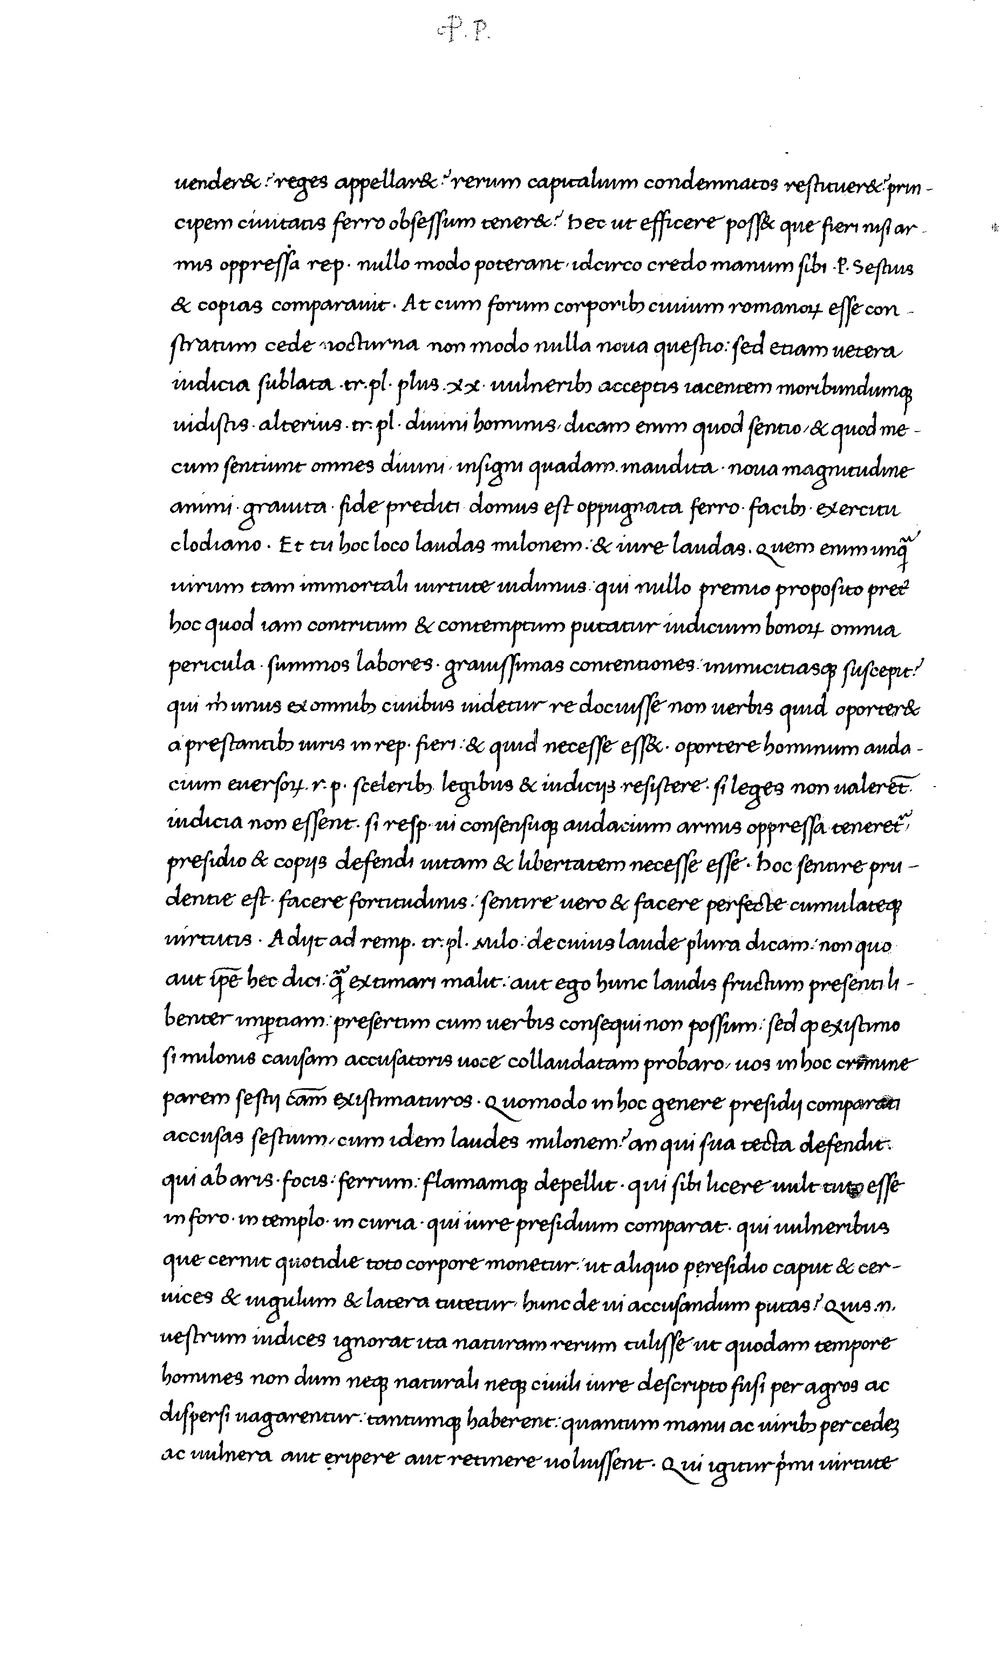 P. P.
uender&? reges appellar&? rerum capitalium condemnatos restituer&? prin-
cipem ciuitatis ferro obsessum tener&? hec ut efficere poss& que fieri nisi ar-
mis oppressa rep. nullo modo poterant, idcirco credo manum sibi .P. Sestius
& copias comparauit. At cum forum corporib; ciuium romanoꝝ esse con-
stratum cede nocturna non modo nulla noua questio: sed etiam uetera
iudicia sublata .tr. pl. plus .xx. uulnerib; acceptis iacentem moribundumq;
uidistis. alterius .tr. pl. diuini hominis, dicam enim quod sentio, & quod me-
cum sentiunt omnes diuini, insigni quadam inaudita. noua magnitudine
animi. grauita. fide prediti domus est oppugnata ferro. facib; exercitu
clodiano. Et tu hoc loco laudas milonem: & iure laudas. Quem enim unq̃
uirum tam immortali uirtute uidimus: qui nullo premio proposito pret̃
hoc quod iam contritum & contemptum putatur iudicium bonoꝝ omnia
pericula. summos labores. grauissimas contentiones: inimicitiasq; suscepit?
qui m̃ unus ex omnib; ciuibus uidetur re docuisse non uerbis quid oporter&
a prestantib; uiris in rep. fieri: & quid necesse ess&. oportere hominum auda-
cium euersoꝝ .r. p. scelerib; legibus & iudicijs resistere. si leges non ualerēt.
iudicia non essent. si resp. ui consensuq; audacium armis oppressa teneret̃,
presidio & copijs defendi uitam & libertatem necesse esse. hoc sentire pru-
dentie est. facere fortitudinis: sentire uero & facere perfecte cumulateq;
uirtutis. Adijt ad remp. tr. pl. Milo: de cuius laude plura dicam: non quo
aut ip̄e hec dici: q̃ extimari malit: aut ego hunc laudis fructum presenti li-
benter imꝑtiam: presertim cum uerbis consequi non possim: sed ꝙ existimo
si milonis causam accusatoris uoce collaudatam probaro, uos in hoc crimine
parem sestij cām existimaturos. Quomodo in hoc genere presidij comparati
accusas sestium, cum idem laudes milonem? an qui sua tecta defendit.
qui ab aris. focis: ferrum: flamamq; depellit. qui sibi licere uult tuto esse
in foro. in templo. in curia. qui iure presidium comparat. qui uulneribus
que cernit quotidie toto corpore monetur: ut aliquo peresidio caput & cer-
uices & iugulum & latera tutetur, hunc de ui accusandum putas? Quis .n.
uestrum iudices ignorat ita naturam rerum tulisse ut quodam tempore
homines non dum neq; naturali neq; ciuili iure descripto fusi per agros ac
dispersi uagarentur: tantumq; haberent: quantum manu ac uirib; per cedeʒ
ac uulnera aut eripere aut retinere uoluissent. Qui igitur p̃mi uirtute